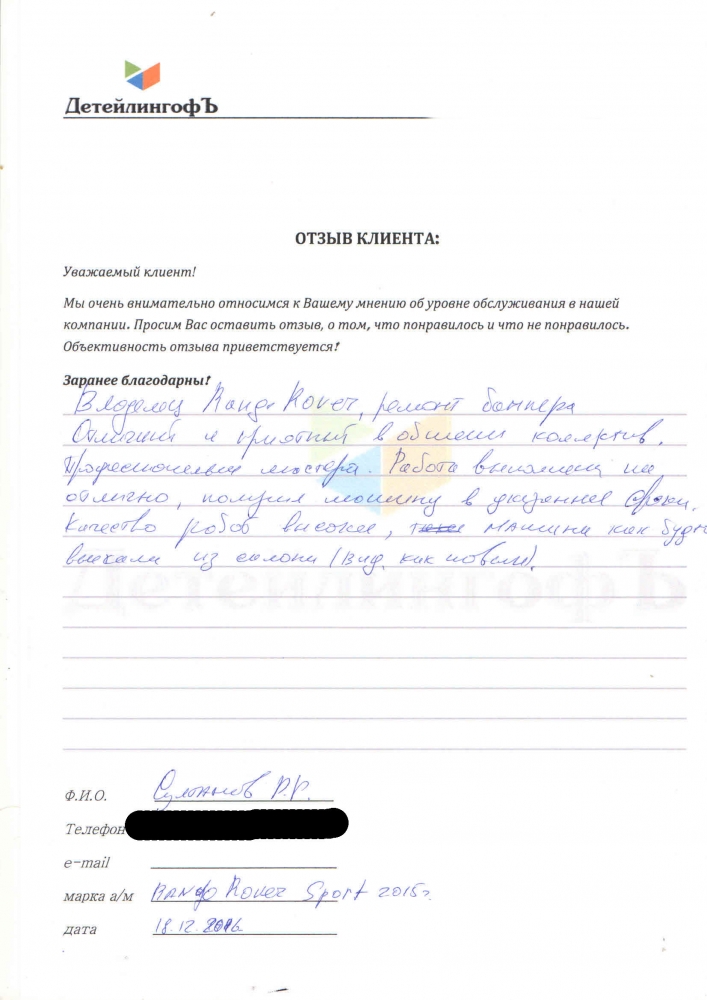 ДетейлингофЪ
ОТЗЫВ КЛИЕНТА:
Уважаемый клиент!
Мы очень внимательно относимся к Вашему мнению об уровне обслуживания в нашей
компании. Просим Вас оставить отзыв, о том, что понравилось и что не понравилось.
Объективность отзыва приветствуется!
Заранее благодарны!
Владелец Range Rover, ремонт бампера
Отличный и приятный в общении коллектив.
Профессиональные мастера. Работа выполнена на
отлично, получил машину в указанные сроки.
Качество работ высокое, машина как будто
выехала из салона (вид, как новый).
ДетейлингофЪ
Ф.И.О. Султанов Р.Р.
Телефон
e-mail
марка а/м Rover Sport 2015г.
дата 18.12.2016